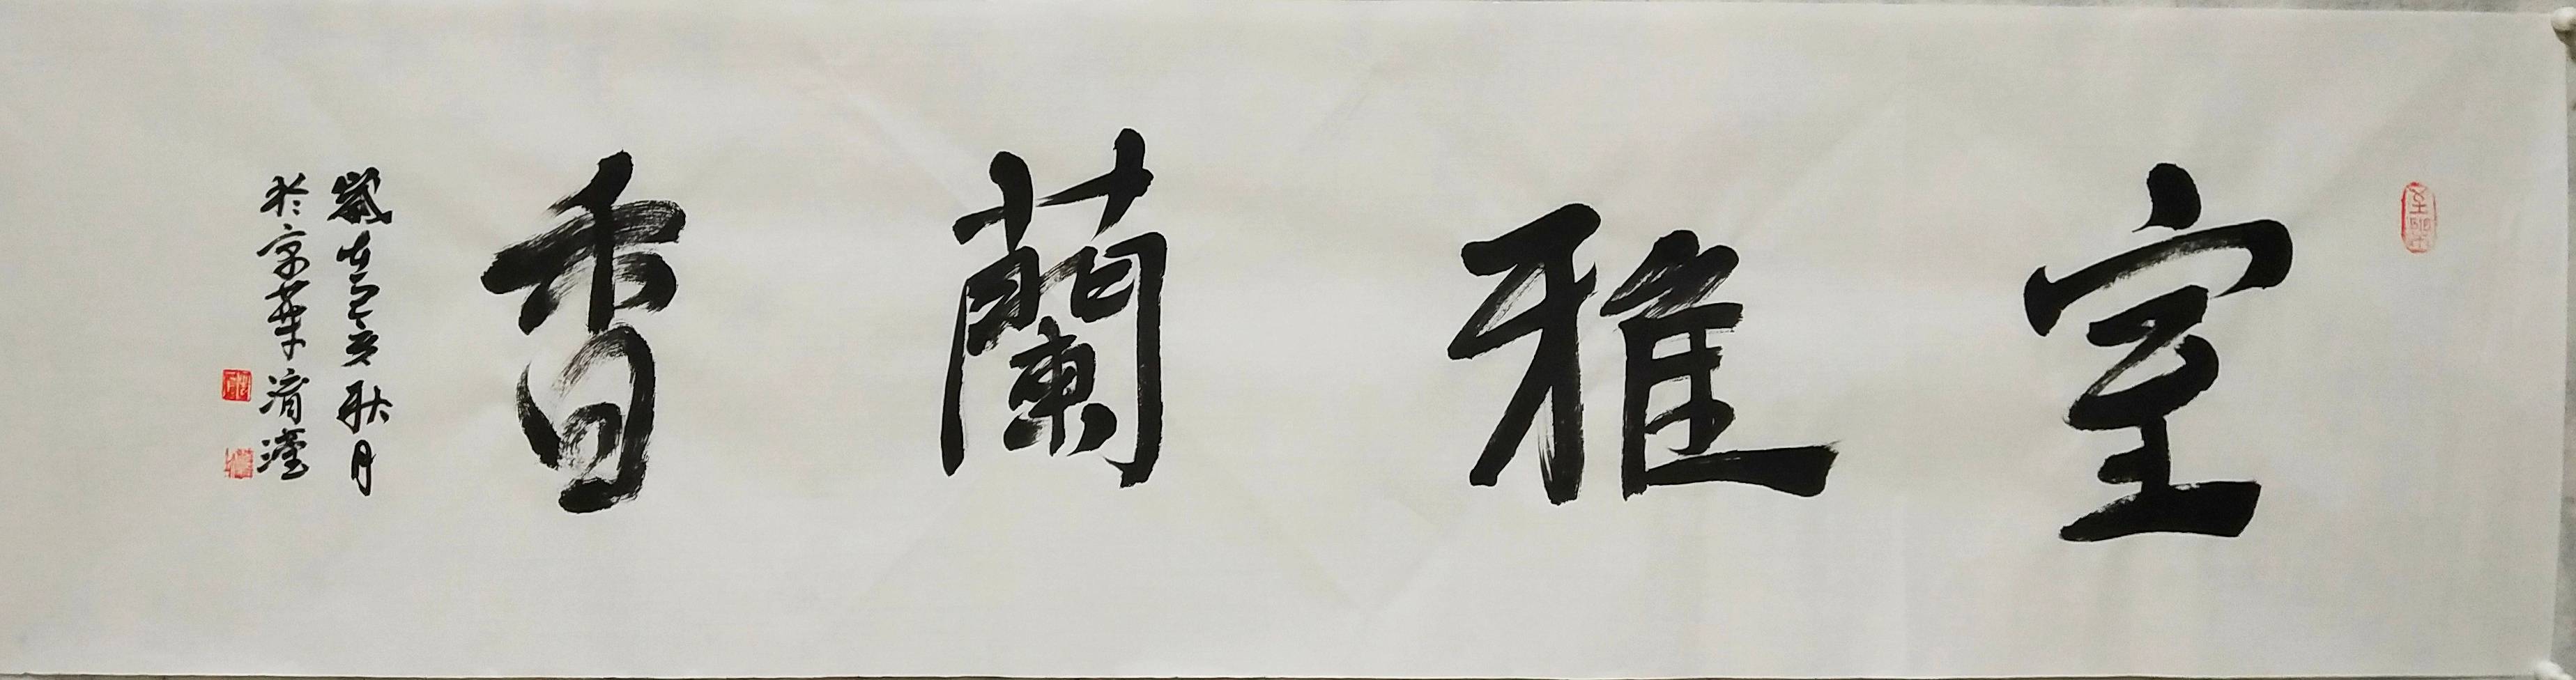 室雅蘭香
歲在己亥秋月
於京華濱瀅